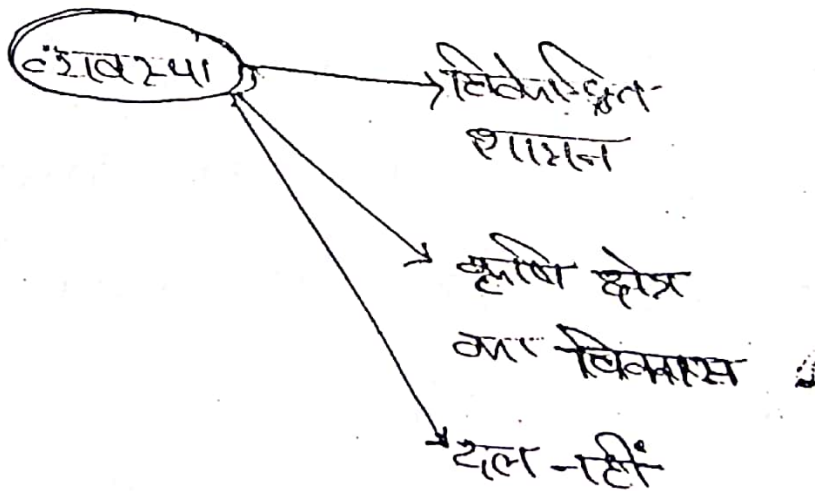 व्यवस्था
विकेन्द्रित
शासन
कृषि क्षेत्र
का विकास
दल नहीं